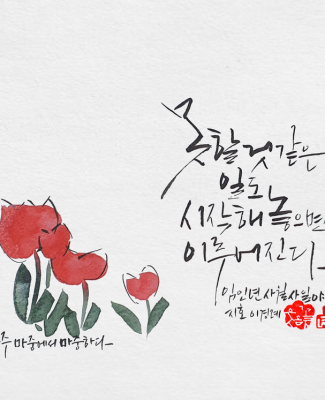 못할것같은
일도
시작해놓으면
이루어진다
임인년사월사일야
지호 이진례
주 마중에서 마중하다